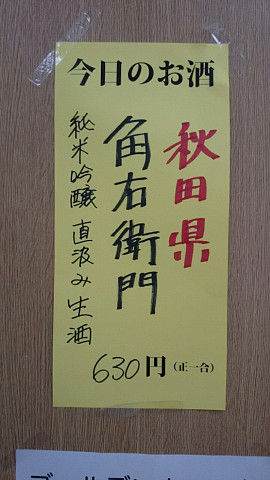 今日のお酒
秋田県
角右衛門
純米吟醸 直汲み生酒
630円(正一合)